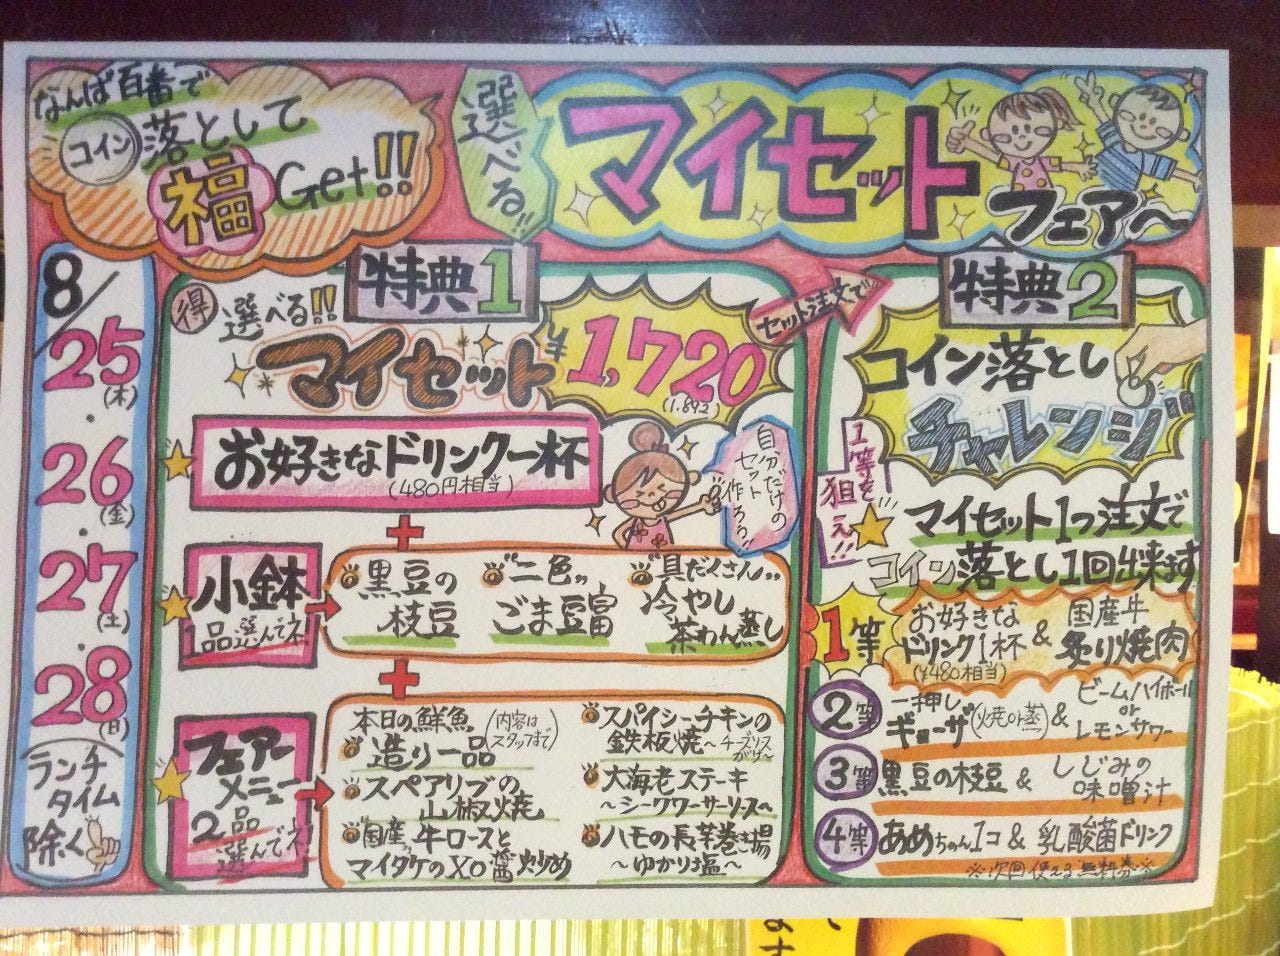 なんば百番で
コイン落として
福Get!!
選べる!!
マイセット
フェア～
8/
25(木)
・
26(金)
・
27(土)
・
28(日)
ランチ
タイム
除く
特典1
得 選べる!!
マイセット
¥1,720
(1.892)
お好きなドリンク一杯
(480円相当)
自分だけの
セット
作ろう!
+
小鉢
1品選んでネ
黒豆の
枝豆
"二色"
ごま豆富
"具だくさん"
冷やし
茶わん蒸し
+
フェアー
メニュー
2品
選んでネ!
本日の鮮魚
造り一品
(内容は
スタッフまで)
スペアリブの
山椒焼
"国産"牛ロースと
マイタケのXO醤炒め
スパイシーチキンの
鉄板焼～チーズソース
がけ～
大海老ステーキ
～シークワーサーソース～
ハモの長芋巻き揚
～ゆかり塩～
セット注文で
特典2
コイン落とし
チャレンジ
1等を
狙え!!
マイセット1つ注文で
コイン落とし1回出来ます
1等
お好きな
ドリンク1杯
(¥480相当)
&
国産牛
炙り焼肉
2等
一押し
ギョーザ(焼or蒸)&
ビームハイボール
or
レモンサワー
3等 黒豆の枝豆 & しじみの
味噌汁
4等 あめちゃん1コ & 乳酸菌ドリンク
※次回使える無料券※